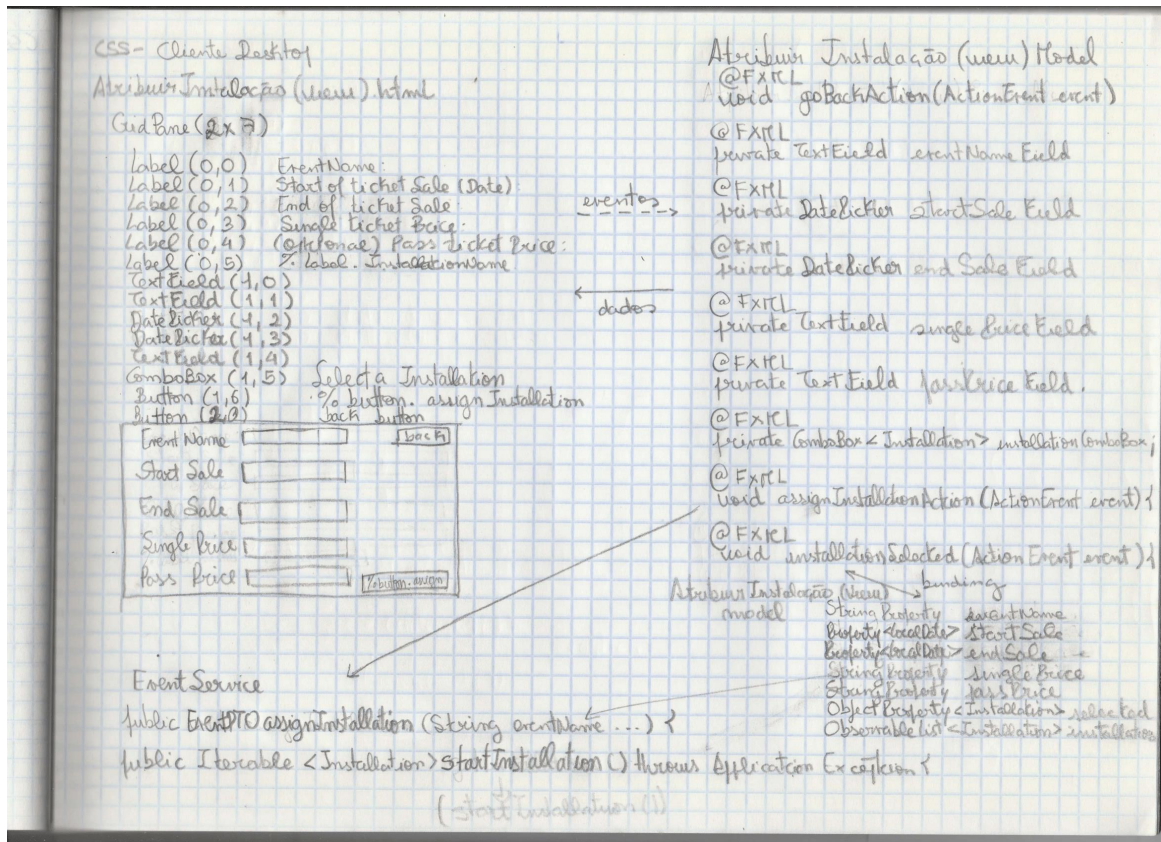 CSS - Cliente Desktop
Atribuir Instalação (view).html
GridPane (2x7)
Label (0,0) EventName:
Label (0,1) Start of ticket Sale (Date):
Label (0,2) End of ticket Sale:
Label (0,3) Single ticket Price:
Label (0,4) (optional) Pass ticket Price:
Label (0,5) %Label.InstallationName
TextField (1,0)
TextField (1,1)
DatePicker (1,2)
DatePicker (1,3)
TextField (1,4)
ComboBox (1,5) Select a Installation
Button (1,6) % button.assignInstallation
Button (2,0) back button
Event Name back
Start Sale
End Sale
Single Price
Pass Price %button.assign
eventos
dados
Atribuir Instalação (view) Model
@FXML
void goBackAction(ActionEvent event)
@FXML
private TextField eventNameField
@FXML
private DatePicker startSaleField
@FXML
private DatePicker endSaleField
@FXML
private TextField singlePriceField
@FXML
private TextField passPriceField.
@FXML
private ComboBox<Installation> installationComboBox;
@FXML
void assignInstallationAction(ActionEvent event){
@FXML
void installationSelected(ActionEvent event){
binding
Atribuir Instalação (View)
model
StringProperty eventName
Property<LocalDate> startSale
Property<LocalDate> endSale
StringProperty singlePrice
StringProperty passPrice
ObjectProperty<Installation> selected
ObservableList<Installation> installations
EventService
public EventDTO assignInstallation (String eventName ...) {
public Iterable <Installation> startInstallation() throws ApplicationException {
(startInstallation())